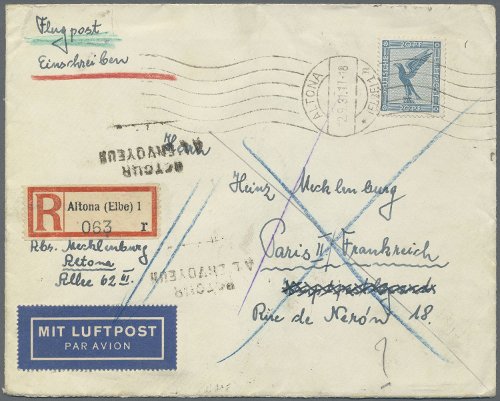 Flugpost
Einschreiben
ALTONA
20 PF
RETOUR
A L'ENVOYEUR
R
Altona (Elbe) 1
063 r
Rbs. Mecklenburg
Altona
Allee 62 III.
Heinz Mecklenburg
Paris II / Frankreich
Rue de Nerón 18.
?
RETOUR
A L'ENVOYEUR
MIT LUFTPOST
PAR AVION